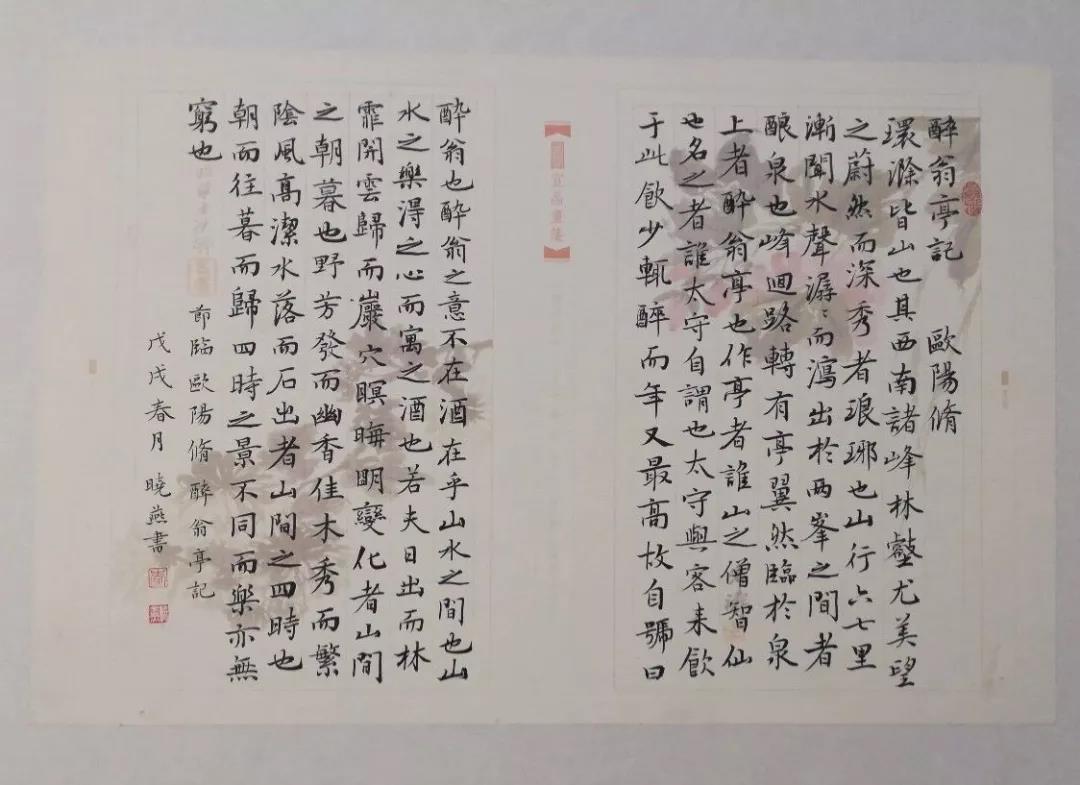 醉翁亭記 歐陽脩
環滁皆山也其西南諸峰林壑尤美望
之蔚然而深秀者琅琊也山行六七里
漸聞水聲潺〻而瀉出於兩峯之間者
釀泉也峰迴路轉有亭翼然臨於泉
上者醉翁亭也作亭者誰山之僧智仙
也名之者誰太守自謂也太守與客來飲
于此飲少輒醉而年又最高故自號曰
醉翁也醉翁之意不在酒在乎山水之間也山
水之樂淂之心而寓之酒也若夫日出而林
霏開雲歸而巖穴暝晦明變化者山間
之朝暮也野芳發而幽香佳木秀而繁
陰風高潔水落而石出者山間之四時也
朝而往暮而歸四時之景不同而樂亦無
窮也
節臨歐陽脩醉翁亭記
戊戌春月 曉燕書